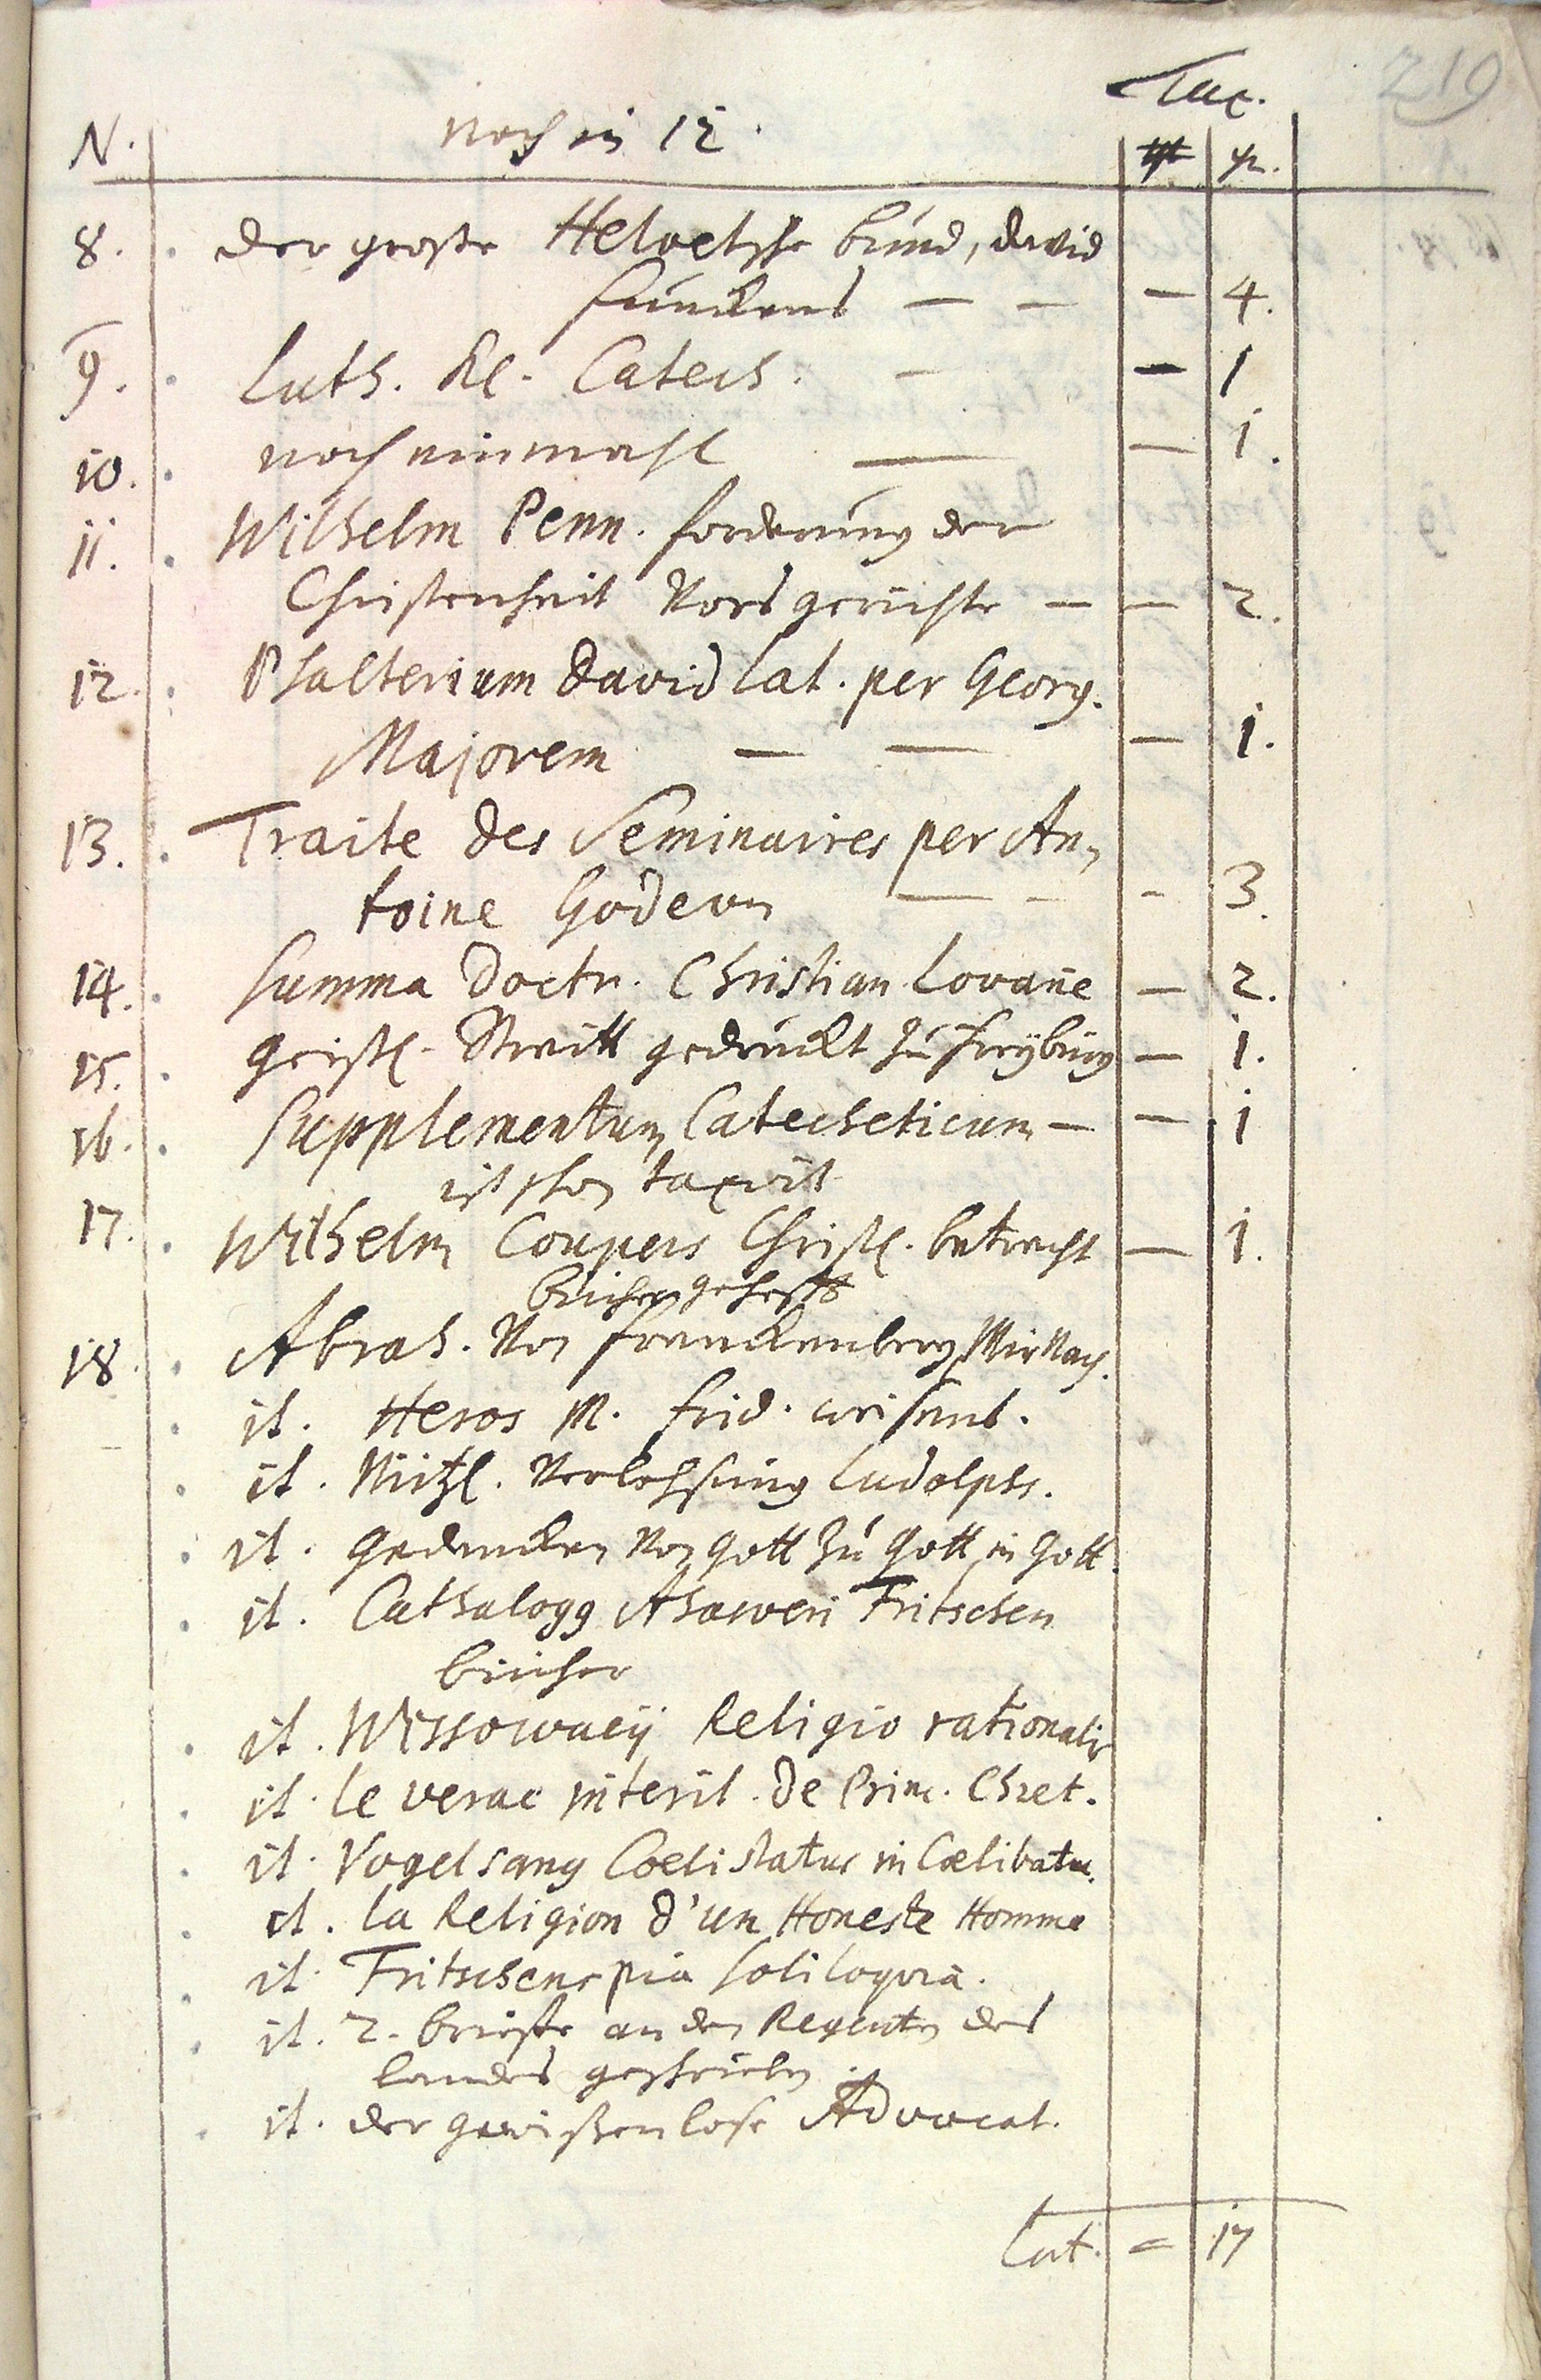 219
Tax.
N. noch in 12. rt gr.
8. der große Helvetsche bund, david
funckens — — — 4.
9. Luth. Kl. Catech. — — 1
10. noch einmahl — — 1.
11. Wilhelm Penn. forderung der
Christenheit Vors gerichte — — 2.
12. Psalterium David lat. per Georg.
Majorem — — — 1.
13. Traite des Seminaires per An-
toine Godeau — — - 3.
14. Summa Doctr. Christian Lovanie — 2.
15. geistl. Streitt gedruckt zu freyburg — 1.
16. Supplementum Catecheticum — — 1
ist schon taxirt
17. Wilhelm Coupers Christl. betracht — 1.
bücher geheft
18. Abrah. Von franckenberg Mir Nach.
it. Heros M. frid.
it. Nützl. Ludolphs.
it. gedancken Von gott zu gott in gott.
it. Cathalogg Ahasveri Fritschen
bücher
it. Wissowacij Religio rationalis
it. le verae interit. de Princ. Chret.
it. Vogelsang Coelistatus in Cœlibatu.
it. la Religion d'un Honeste Homme
it. Fritschens pia soliloquia.
it. 2. brieffe an den Regenten des
landes geschrieben.
it. der gewißenlose Advocat.
Lat. = 17